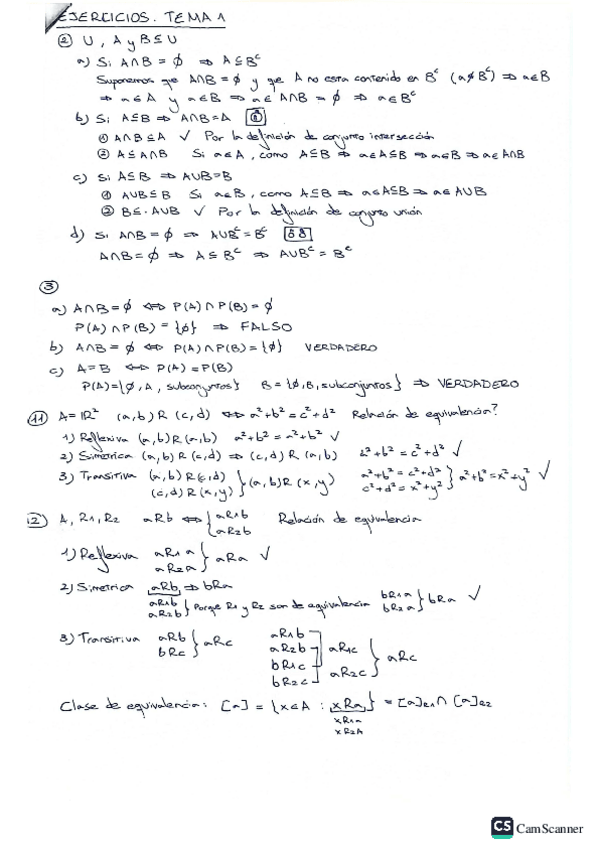 EJERCICIOS. TEMA 1
② U, A y B ⊆ U
a) Si A∩B = ∅ ⇒ A ⊆ Bᶜ
Suponemos que A∩B = ∅ y que A no esta contenido en Bᶜ (a∉Bᶜ) ⇒ a∈B
⇒ a∈A y a∈B ⇒ a∈A∩B = ∅ ⇒ a∈Bᶜ
b) Si A⊆B ⇒ A∩B=A
① A∩B ⊆ A ✓ Por la definición de conjunto intersección
② A ⊆ A∩B Si a∈A, como A⊆B ⇒ a∈A⊆B ⇒ a∈B ⇒ a∈A∩B
c) Si A⊆B ⇒ A∪B=B
① A∪B⊆B Si a∈B, como A⊆B ⇒ a∈A⊆B ⇒ a∈A∪B
② B⊆A∪B ✓ Por la definición de conjunto unión
d) Si A∩B = ∅ ⇒ A∪Bᶜ=Bᶜ
A∩B=∅ ⇒ A⊆Bᶜ ⇒ A∪Bᶜ = Bᶜ
③
a) A∩B=∅ ⇔ P(A)∩P(B)=∅
P(A)∩P(B) = {∅} ⇒ FALSO
b) A∩B=∅ ⇔ P(A)∩P(B)={∅} VERDADERO
c) A=B ⇔ P(A)=P(B)
P(A)={∅, A, subconjuntos} B={∅, B, subconjuntos} ⇒ VERDADERO
⑪ A=ℝ² (a,b) R (c,d) ⇔ a²+b²=c²+d² Relación de equivalencia?
1) Reflexiva (a,b) R (a,b) a²+b²=a²+b² ✓
2) Simétrica (a,b) R (c,d) ⇒ (c,d) R (a,b) a²+b²=c²+d² ✓
3) Transitiva (a,b) R (c,d) } (a,b) R (x,y) a²+b²=c²+d² } a²+b²=x²+y² ✓
(c,d) R (x,y) c²+d²=x²+y²
12) A, R1, R2 aRb ⇔ { aR1b Relación de equivalencia
aR2b
1) Reflexiva aR1a } aRa ✓
aR2a
2) Simetrica aRb ⇒ bRa
aR1b } Porque R1 y R2 son de equivalencia bR1a } bRa ✓
aR2b bR2a
3) Transitiva aRb } aRc aR1b
bRc aR2b aR1c } aRc
bR1c aR2c
bR2c
Clase de equivalencia: [a] = {x∈A : xRa} = [a]R1 ∩ [a]R2
xR1a
xR2A
CS CamScanner